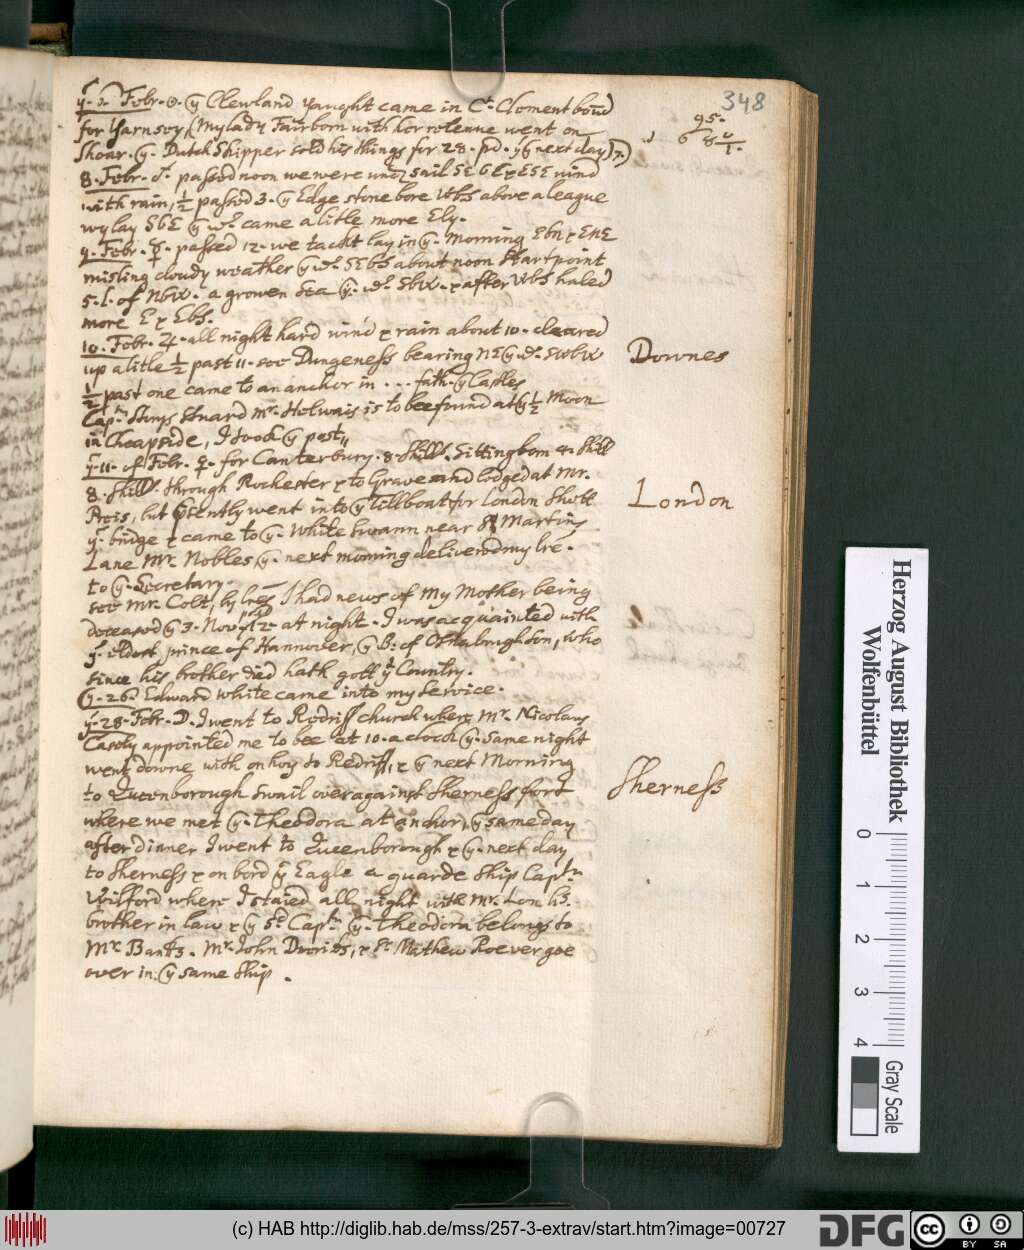 348
95.
6 8 0/1.
ẙ. 5. Febr. ☉. ẙ Clewland Yaught came in Ct. Clement bōud
for Yarnsey, (Mylady Fairborn with her retenue went on
shoar. ẙ. Dutch Shipper sold his things for 28. pd. ẙ next day) 7.)
8. Febr. ♂. passed noon we were und sail SE 6E & ESE wind
with rain, ½ passed 3. ẙ Edge stone bore Wbs above a league
wy lay SbE ẙ wd. came a litle more Ely.
9. Febr. ☿. passed 12. we tackt lay in ẙ. morning Ebn & ENE
misling cloudy weather ẙ wd. SEbs about noon Startpoint
5. l. of NbW. a growen sea ẙ. wd. SbW. & after Wbs haled
more E & Ebs.
10. Febr. ♃. all night hard wind & rain about 10. cleared
up a litle ½ past 11. see Dungeness bearing NE ẙ wd. swbw
½ past one came to an anchor in . . . fath. ẙ Castles
Capn. Stuard Mr. Helwais is to bee found at ẙ ½ Moon
in Cheapside, I took ẙ post,,
ẙ. 11. of Febr. ♀. for Canterbury. 8. shills. Sittingbom 4. shill
8. shills. through Rochester & to Gravesand lodged at Mr.
Preis, but psently went into ẙ Tillboat for London shott
ẙ. bridge & came to ẙ. White Swann near St Martins
Lane Mr. Nobles, ẙ. next morning delivered my lrē.
to ẙ. Secretary.
see Mr. Colt, by lres I had news of my Mother being
deceased ẙ 3. Nov. past 12. at night. I was acquainted with
ẙ. eldest prince of Hannover, ẙ B: of Osnabrugh Son, who
since his brother died hath gott ẙ Country.
ẙ. 26. Edward White came into my service.
ẙ. 28. Febr. D. I went to Redriff church where Mr. Nicolaus
Casoly appointed me to bee at 10. a clock ẙ. same night
went downe with on hoy to Redriff, & ẙ next Morning
to Queenborough Swail over against Sherness fort
where we met ẙ. Theodora at anchor, ẙ same day
after dinner I went to Queenborough & ẙ. next day
to Sherness & on bord ẙ Eagle a guarde ship Captn
Wilford where I staied all night with Mr. Lon his.
brother in law & ẙ sd. Captn. ẙ. Theodora belongs to
Mr Banks. Mr. John Dvories, & Sr. Mathew Roever goe
over in ẙ same ship .
Downes
London
Sherness
Herzog August Bibliothek
Wolfenbüttel
0 1 2 3 4
Gray Scale
(c) HAB http://diglib.hab.de/mss/257-3-extrav/start.htm?image=00727
DFG
cc
BY SA